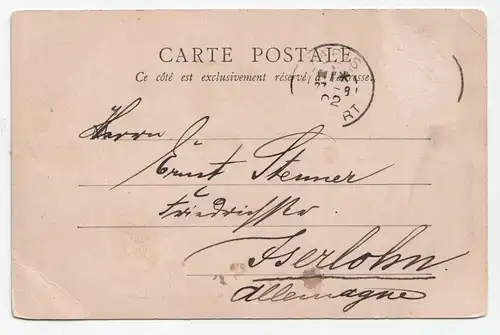 CARTE POSTALE
Ce côté est exclusivement réservé à l'adresse.
Herrn
Ernst Stenner
Friedrichstr
Iserlohn
Allemagne